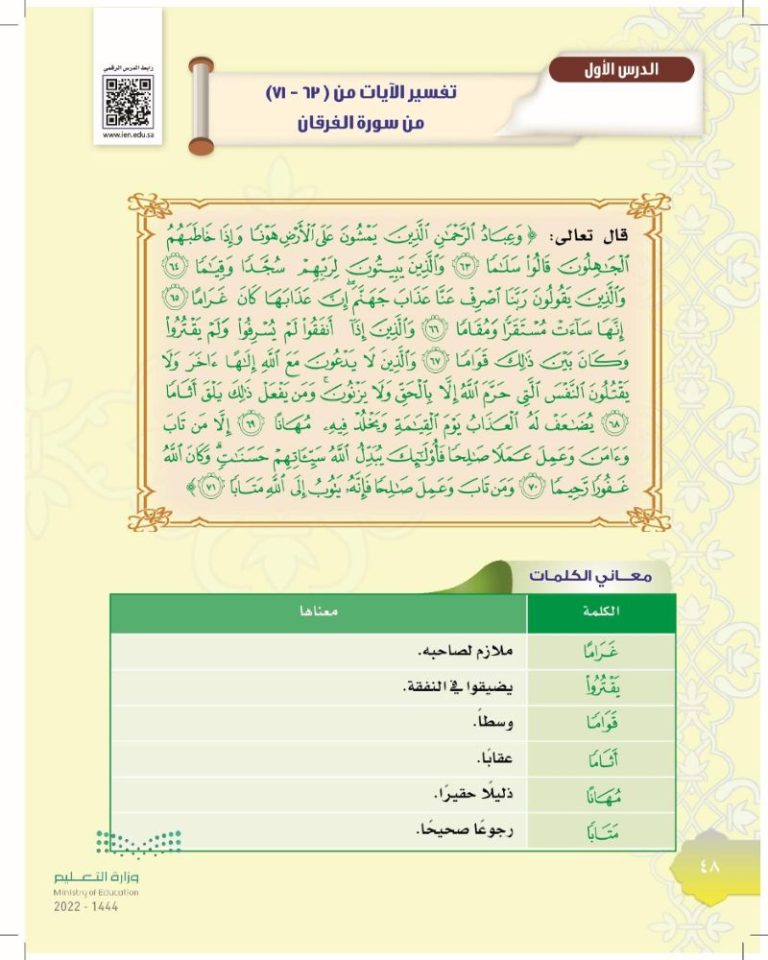 رابط الدرس الرقمي
www.ien.edu.sa
الدرس الأول
تفسير الآيات من (٦٣ - ٧١)
من سورة الفرقان
قال تعالى: ﴿ وَعِبَادُ الرَّحْمَٰنِ الَّذِينَ يَمْشُونَ عَلَى الْأَرْضِ هَوْنًا وَإِذَا خَاطَبَهُمُ
الْجَٰهِلُونَ قَالُوا سَلَٰمًا ٦٣ وَالَّذِينَ يَبِيتُونَ لِرَبِّهِمْ سُجَّدًا وَقِيَٰمًا ٦٤
وَالَّذِينَ يَقُولُونَ رَبَّنَا اصْرِفْ عَنَّا عَذَابَ جَهَنَّمَ إِنَّ عَذَابَهَا كَانَ غَرَامًا ٦٥
إِنَّهَا سَاءَتْ مُسْتَقَرًّا وَمُقَامًا ٦٦ وَالَّذِينَ إِذَا أَنفَقُوا لَمْ يُسْرِفُوا وَلَمْ يَقْتُرُوا
وَكَانَ بَيْنَ ذَٰلِكَ قَوَامًا ٦٧ وَالَّذِينَ لَا يَدْعُونَ مَعَ اللَّهِ إِلَٰهًا ءَاخَرَ وَلَا
يَقْتُلُونَ النَّفْسَ الَّتِي حَرَّمَ اللَّهُ إِلَّا بِالْحَقِّ وَلَا يَزْنُونَ ۚ وَمَن يَفْعَلْ ذَٰلِكَ يَلْقَ أَثَامًا
٦٨ يُضَٰعَفْ لَهُ الْعَذَابُ يَوْمَ الْقِيَٰمَةِ وَيَخْلُدْ فِيهِ مُهَانًا ٦٩ إِلَّا مَن تَابَ
وَءَامَنَ وَعَمِلَ عَمَلًا صَٰلِحًا فَأُولَٰئِكَ يُبَدِّلُ اللَّهُ سَيِّـَٔاتِهِمْ حَسَنَٰتٍ ۗ وَكَانَ اللَّهُ
غَفُورًا رَّحِيمًا ٧٠ وَمَن تَابَ وَعَمِلَ صَٰلِحًا فَإِنَّهُ يَتُوبُ إِلَى اللَّهِ مَتَابًا ٧١ ﴾
معاني الكلمات
الكلمة معناها
غَرَامًا ملازم لصاحبه.
يَقْتُرُوا يضيقوا في النفقة.
قَوَامًا وسطاً.
أَثَامًا عقابًا.
مُهَانًا ذليلًا حقيرًا.
مَتَابًا رجوعًا صحيحًا.
٤٨
وزارة التعليم
Ministry of Education
2022 - 1444